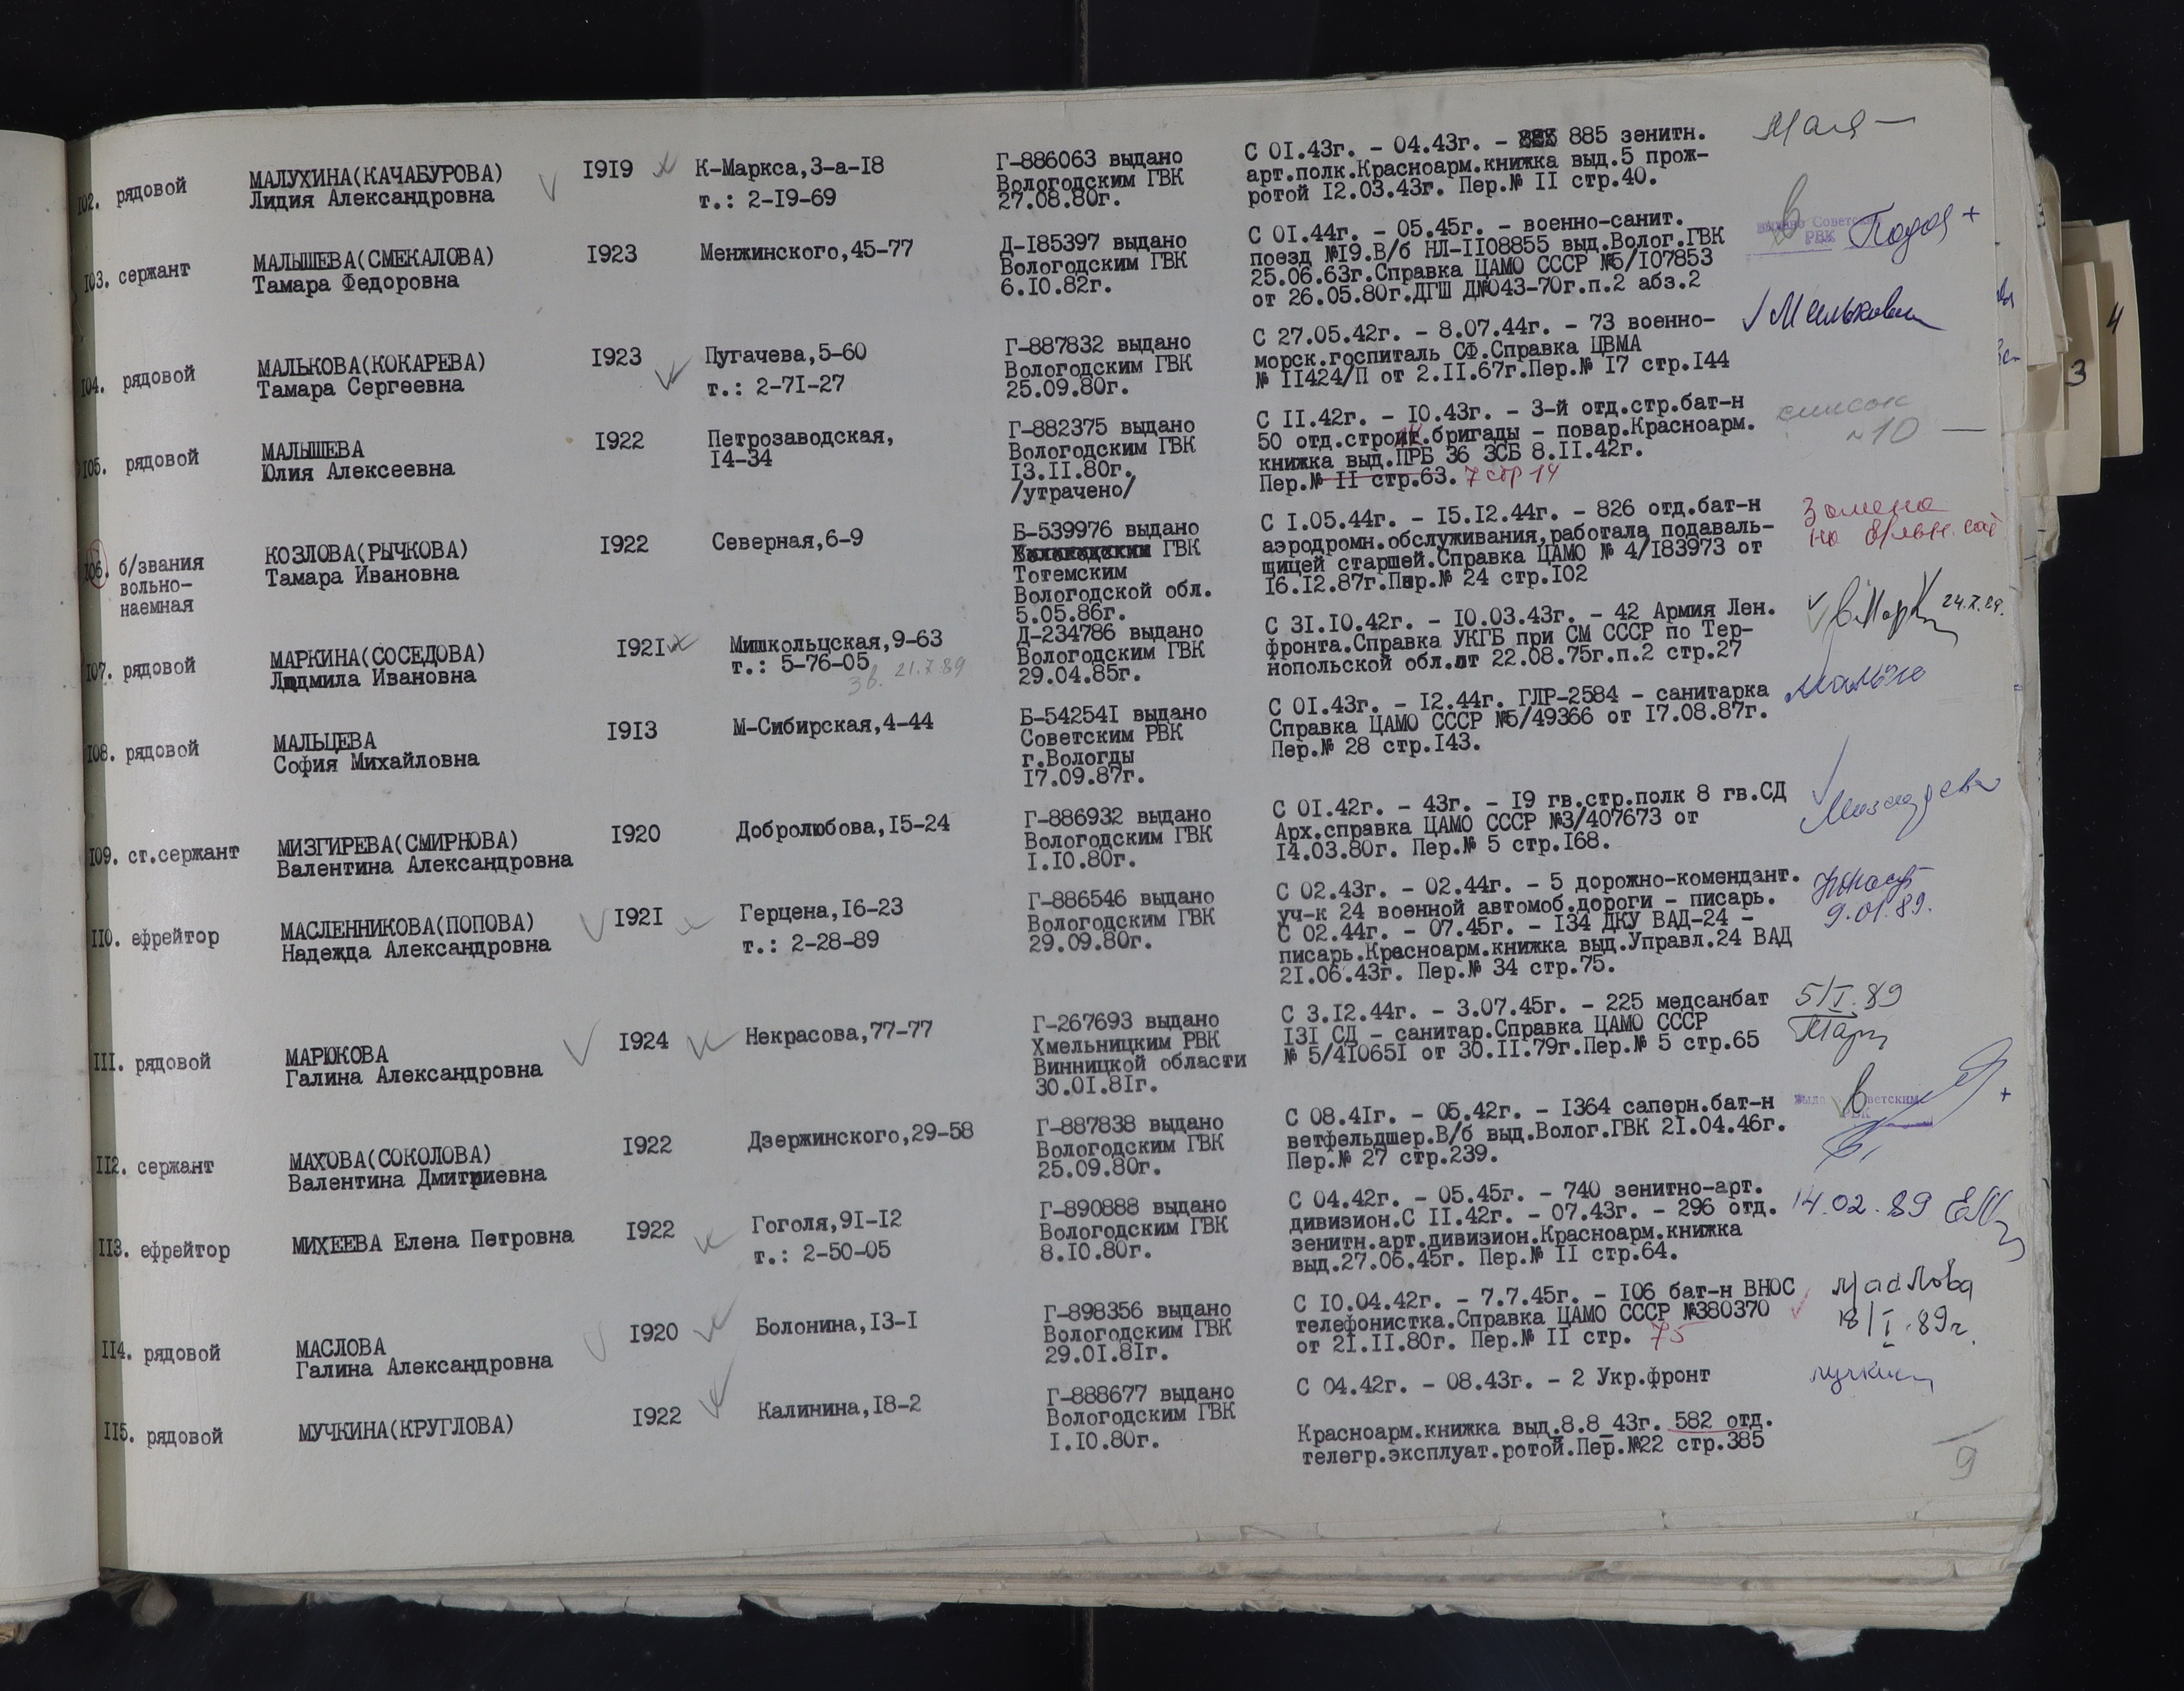 102. рядовой МАЛУХИНА(КАЧАБУРОВА) 1919 К-Маркса,3-а-18 Г-886063 выдано С 01.43г. - 04.43г. - 885 зенитн.
Лидия Александровна т.: 2-19-69 Вологодским ГВК арт.полк.Красноарм.книжка выд.5 прож-
27.08.80г. ротой 12.03.43г. Пер.№ 11 стр.40.
103. сержант МАЛЫШЕВА(СМЕКАЛОВА) 1923 Менжинского,45-77 Д-185397 выдано С 01.44г. - 05.45г. - военно-санит.
Тамара Федоровна Вологодским ГВК поезд №19.В/б НЛ-1108855 выд.Волог.ГВК
6.10.82г. 25.06.63г.Справка ЦАМО СССР №5/107853
от 26.05.80г.ДГШ Д№043-70г.п.2 абз.2
104. рядовой МАЛЬКОВА(КОКАРЕВА) 1923 Пугачева,5-60 Г-887832 выдано С 27.05.42г. - 8.07.44г. - 73 военно-
Тамара Сергеевна т.: 2-71-27 Вологодским ГВК морск.госпиталь СФ.Справка ЦВМА
25.09.80г. № 11424/П от 2.11.67г.Пер.№ 17 стр.144
105. рядовой МАЛЫШЕВА 1922 Петрозаводская, Г-882375 выдано С 11.42г. - 10.43г. - 3-й отд.стр.бат-н список
Юлия Алексеевна 14-34 Вологодским ГВК 50 отд.строит.бригады - повар.Красноарм. №10 —
13.11.80г. книжка выд.ПРБ 36 ЗСБ 8.11.42г.
/утрачено/ Пер.№ 11 стр.63. 7 стр 14
106. б/звания КОЗЛОВА(РЫЧКОВА) 1922 Северная,6-9 Б-539976 выдано С 1.05.44г. - 15.12.44г. - 826 отд.бат-н Замена
вольно- Тамара Ивановна ГВК аэродромн.обслуживания,работала подаваль-
наемная Тотемским щицей старшей.Справка ЦАМО № 4/183973 от
Вологодской обл. 16.12.87г.Пер.№ 24 стр.102
5.05.86г.
107. рядовой МАРКИНА(СОСЕДОВА) 1921 Мишкольцская,9-63 Д-234786 выдано С 31.10.42г. - 10.03.43г. - 42 Армия Лен.
Людмила Ивановна т.: 5-76-05 Вологодским ГВК фронта.Справка УКГБ при СМ СССР по Тер-
зв. 21.7.89 29.04.85г. нопольской обл.от 22.08.75г.п.2 стр.27
108. рядовой МАЛЬЦЕВА 1913 М-Сибирская,4-44 Б-542541 выдано С 01.43г. - 12.44г. ГЛР-2584 - санитарка
София Михайловна Советским РВК Справка ЦАМО СССР №5/49366 от 17.08.87г.
г.Вологды Пер.№ 28 стр.143.
17.09.87г.
109. ст.сержант МИЗГИРЕВА(СМИРНОВА) 1920 Добролюбова,15-24 Г-886932 выдано С 01.42г. - 43г. - 19 гв.стр.полк 8 гв.СД
Валентина Александровна Вологодским ГВК Арх.справка ЦАМО СССР №3/407673 от
1.10.80г. 14.03.80г. Пер.№ 5 стр.168.
110. ефрейтор МАСЛЕННИКОВА(ПОПОВА) 1921 Герцена,16-23 Г-886546 выдано С 02.43г. - 02.44г. - 5 дорожно-комендант.
Надежда Александровна т.: 2-28-89 Вологодским ГВК уч-к 24 военной автомоб.дороги - писарь. 9.01.89.
29.09.80г. С 02.44г. - 07.45г. - 134 ДКУ ВАД-24 -
писарь.Красноарм.книжка выд.Управл.24 ВАД
21.06.43г. Пер.№ 34 стр.75.
111. рядовой МАРЮКОВА 1924 Некрасова,77-77 Г-267693 выдано С 3.12.44г. - 3.07.45г. - 225 медсанбат 5/I.89
Галина Александровна Хмельницким РВК 131 СД - санитар.Справка ЦАМО СССР
Винницкой области № 5/410651 от 30.11.79г.Пер.№ 5 стр.65
30.01.81г.
112. сержант МАХОВА(СОКОЛОВА) 1922 Дзержинского,29-58 Г-887838 выдано С 08.41г. - 05.42г. - 1364 саперн.бат-н
Валентина Дмитриевна Вологодским ГВК ветфельдшер.В/б выд.Волог.ГВК 21.04.46г.
25.09.80г. Пер.№ 27 стр.239.
113. ефрейтор МИХЕЕВА Елена Петровна 1922 Гоголя,91-12 Г-890888 выдано С 04.42г. - 05.45г. - 740 зенитно-арт. 14.02.89
т.: 2-50-05 Вологодским ГВК дивизион.С 11.42г. - 07.43г. - 296 отд.
8.10.80г. зенитн.арт.дивизион.Красноарм.книжка
выд.27.06.45г. Пер.№ 11 стр.64.
114. рядовой МАСЛОВА 1920 Болонина,13-1 Г-898356 выдано С 10.04.42г. - 7.7.45г. - 106 бат-н ВНОС Маслова
Галина Александровна Вологодским ГВК телефонистка.Справка ЦАМО СССР №380370 18/I.89г.
29.01.81г. от 21.11.80г. Пер.№ 11 стр. 75
115. рядовой МУЧКИНА(КРУГЛОВА) 1922 Калинина,18-2 Г-888677 выдано С 04.42г. - 08.43г. - 2 Укр.фронт
Вологодским ГВК Красноарм.книжка выд.8.8_43г. 582 отд.
1.10.80г. телегр.эксплуат.ротой.Пер.№22 стр.385
9
3
4